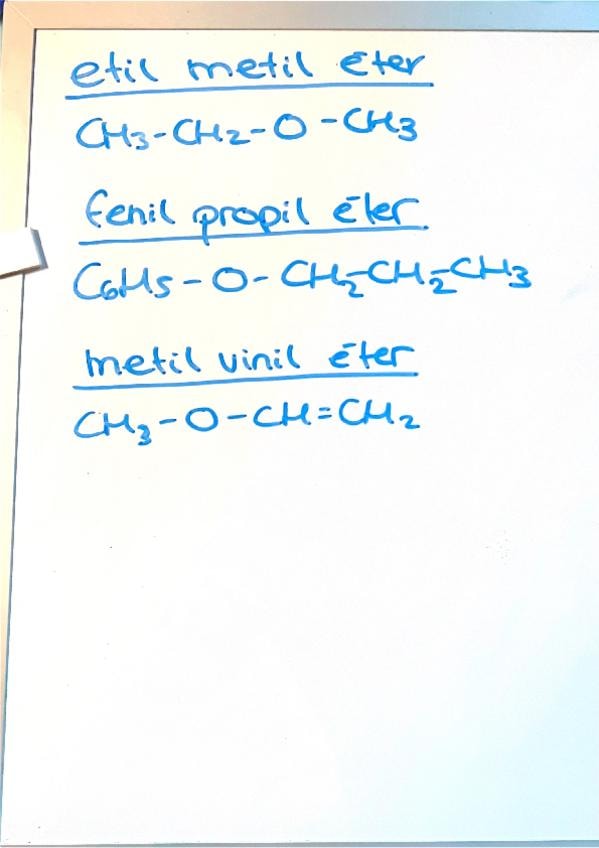 etil metil éter
CH3-CH2-O-CH3
fenil propil éter.
C6H5-O-CH2-CH2-CH3
metil vinil éter
CH3-O-CH=CH2